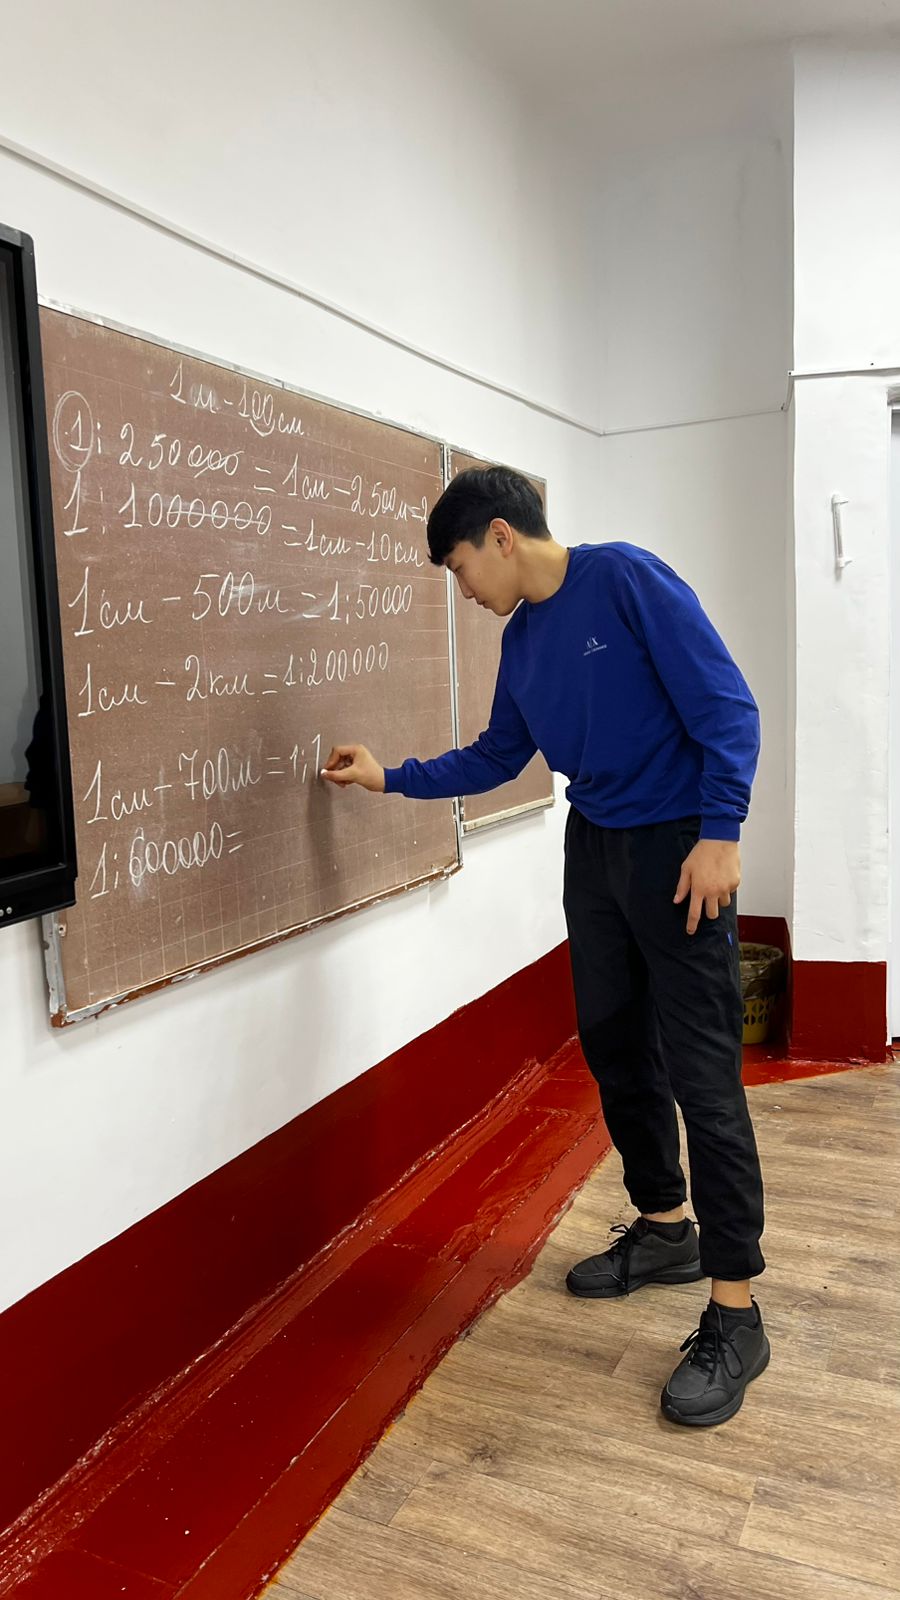 1м - 100см
1: 250000 = 1см - 2500м=2
1: 1000000 = 1см - 10км
1см - 500м = 1:50000
1см - 2км = 1:200000
1см - 700м = 1:7
1:600000=
A|X